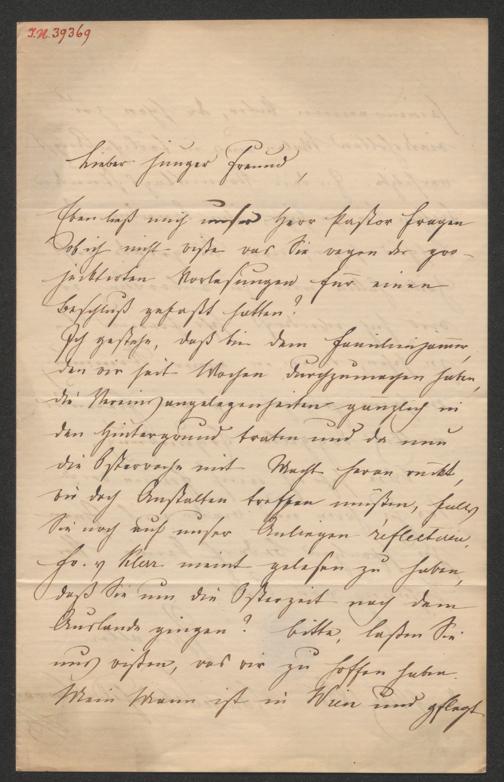 I.N. 39369
Lieber junger Freund,
Eben ließ mich unser Herr Pastor fragen
ob ich nicht wiße was Sie wegen der pro-
jecktierten Vorlesungen für einen
Beschluß gefaßt hatten?
Ich gestehe, daß bei dem Familienjammer,
den wir seit Wochen durchzumachen haben,
die Vereinsangelegenheiten gänzlich in
den Hintergrund traten und da nun
die Osterwoche mit Macht heran rückt,
wir doch Anstalten treffen müßten, falls
Sie noch auf unser Anliegen reflectiren.
Fr. v Klar meint gelesen zu haben,
daß Sie um die Osterzeit nach dem
Auslande gingen? bitte, laßen Sie
uns wißen, was wir zu hoffen haben.
Mein Mann ist in Wien und pflegt